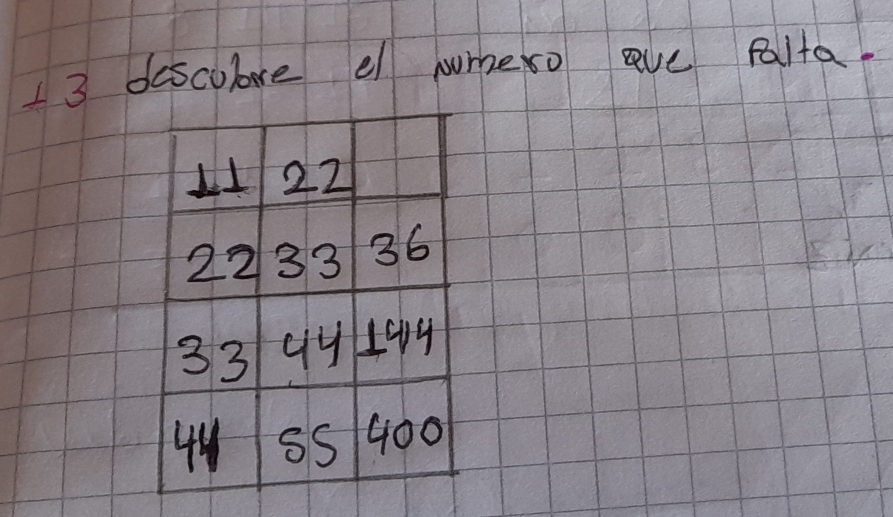 13 descubre el numero que falta.
11 22
22 33 36
33 44 144
44 55 400